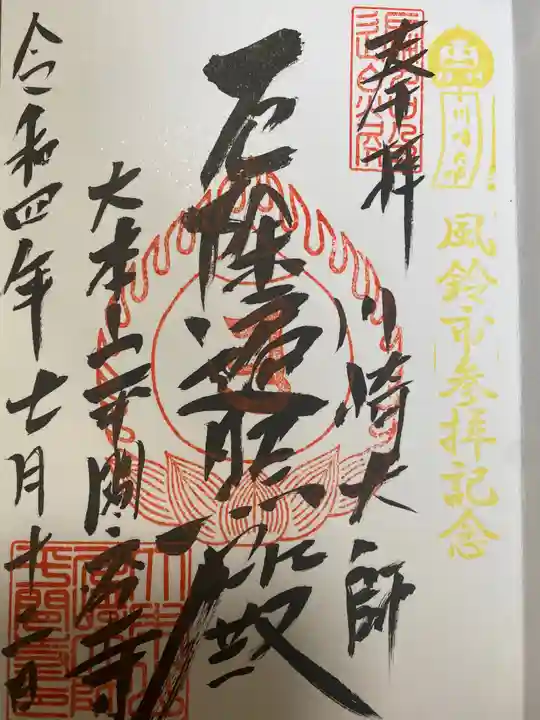 風鈴市参拝記念
奉拝
川崎大師
厄除遍照殿
大本山平間寺
令和四年七月十二日